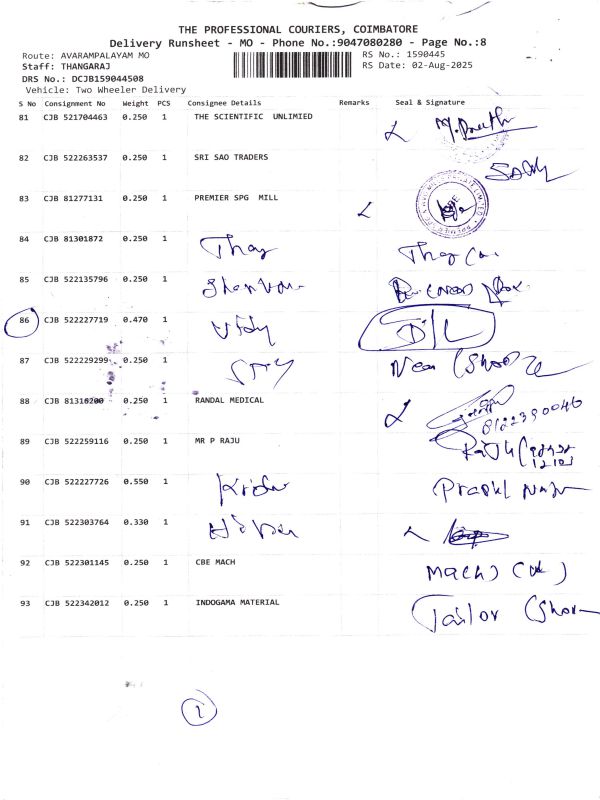 THE PROFESSIONAL COURIERS, COIMBATORE
Delivery Runsheet - MO - Phone No.:9047080280 - Page No.:8
Route: AVARAMPALAYAM MO RS No.: 1590445
Staff: THANGARAJ RS Date: 02-Aug-2025
DRS No.: DCJB159044508
Vehicle: Two Wheeler Delivery
S No Consignment No Weight PCS Consignee Details Remarks Seal & Signature
81 CJB 521704463 0.250 1 THE SCIENTIFIC UNLIMIED
82 CJB 522263537 0.250 1 SRI SAO TRADERS
83 CJB 81277131 0.250 1 PREMIER SPG MILL
84 CJB 81301872 0.250 1
85 CJB 522135796 0.250 1
86 CJB 522227719 0.470 1 D/L
87 CJB 522229299 0.250 1
88 CJB 81316200 0.250 1 RANDAL MEDICAL
8122390046
89 CJB 522259116 0.250 1 MR P RAJU
90 CJB 522227726 0.550 1
91 CJB 522303764 0.330 1
92 CJB 522301145 0.250 1 CBE MACH
93 CJB 522342012 0.250 1 INDOGAMA MATERIAL Tailor
1